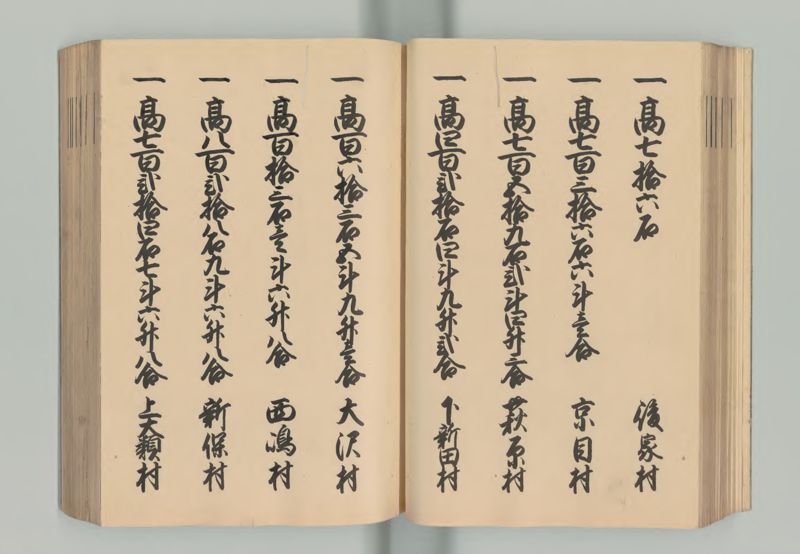 一高七拾六石 後家村
一高七百三拾六石六斗壱合 京目村
一高七百五拾九石弐斗四升三合 萩原村
一高四百弐拾石四斗九升弐合 下新田村
一高百六拾三石五斗九升壱合 大沢村
一高百拾三石壱斗六升八合 西嶋村
一高八百弐拾八石九斗六升八合 新保村
一高七百弐拾四石七斗六升八合 上大類村